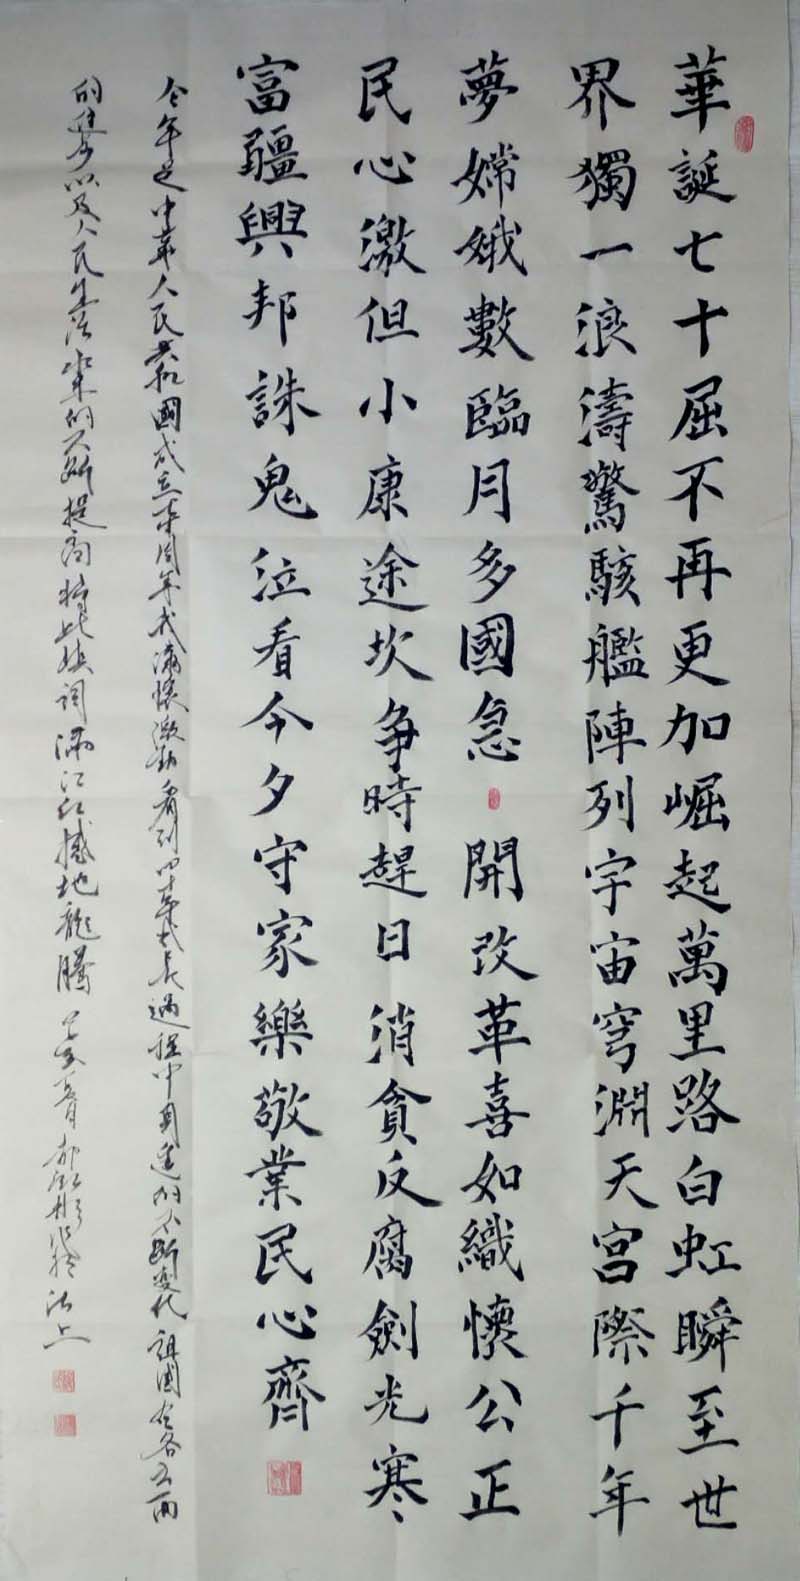 華誕七十屈不再更加崛起萬里路白虹瞬至世
界獨一浪濤驚駭艦陣列宇宙穹淵天宮際千年
夢嫦娥數臨月多國急開改革喜如織懷公正
民心激但小康途坎争時趕日消貪反腐劍光寒
富疆興邦誅鬼泣看今夕守家樂敬業民心齊
今年是中華人民共和國成立柒拾周年我滿懷激動看到四十年成長過程中周邊的不斷變化祖國各方面
的進步以及人民生活水平的不斷提高特此填詞滿江紅撼地龍騰